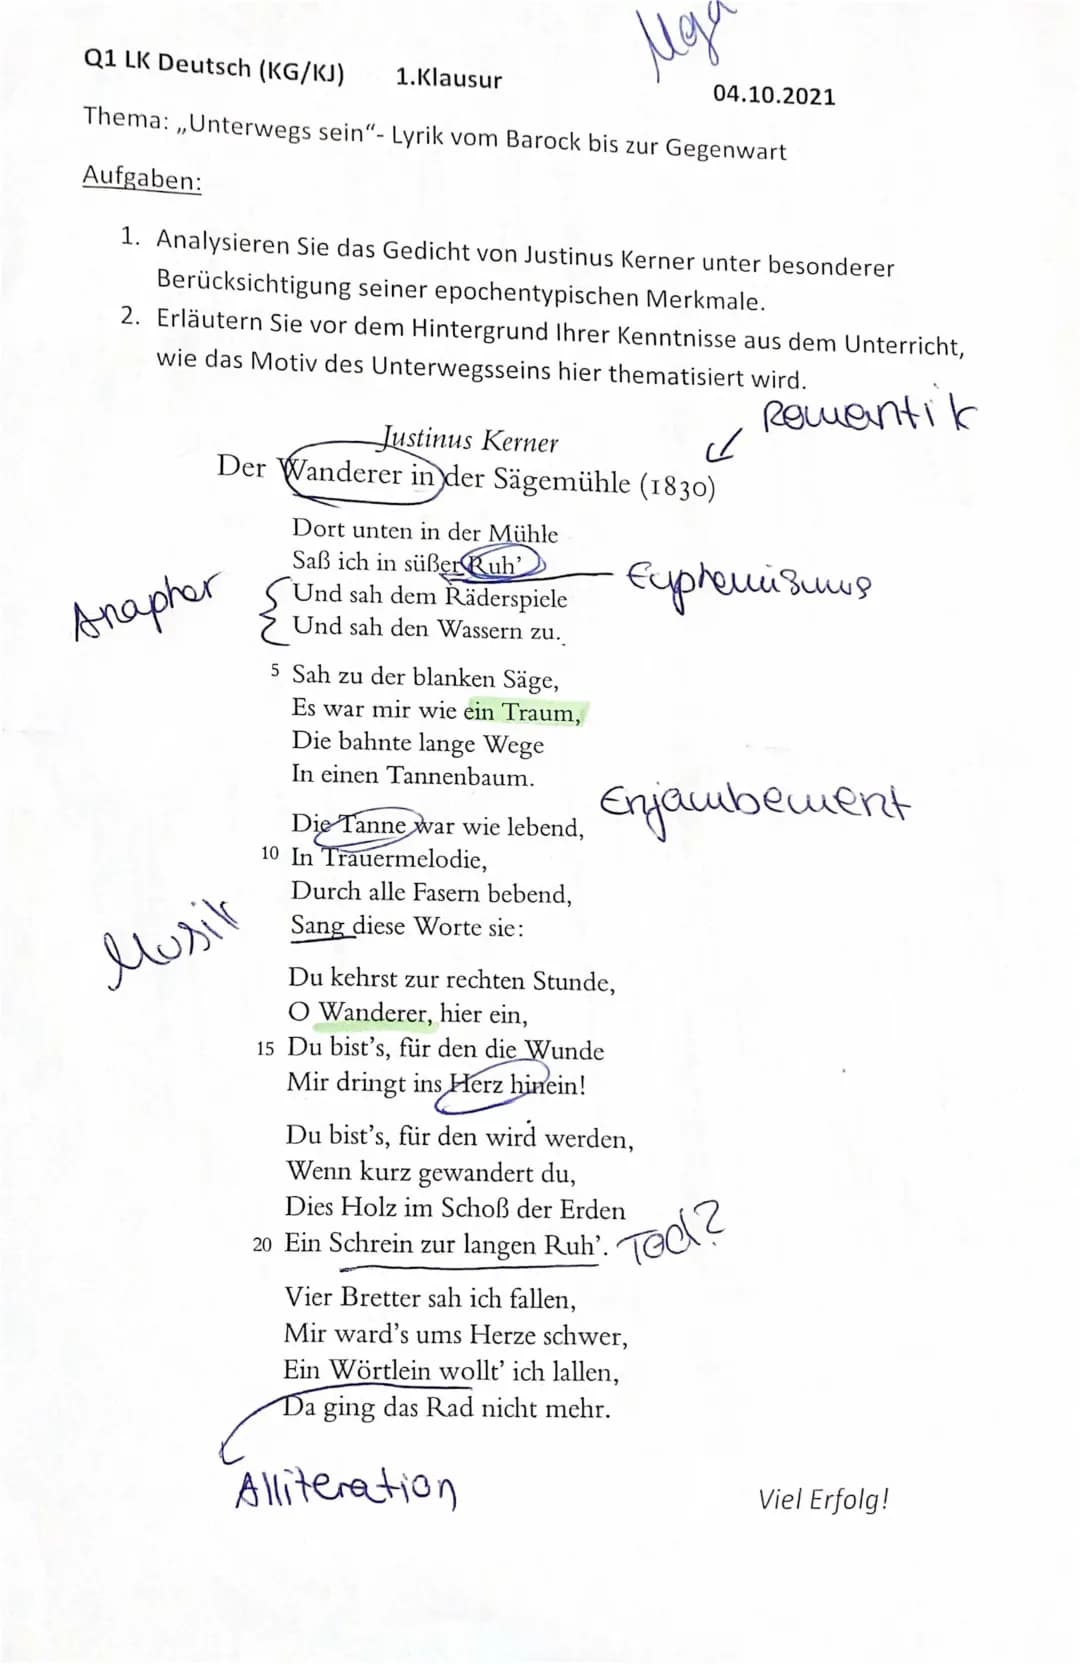 Q1 LK Deutsch (KG/KJ) 1.Klausur
04.10.2021
Thema: „Unterwegs sein“- Lyrik vom Barock bis zur Gegenwart
Aufgaben:
1. Analysieren Sie das Gedicht von Justinus Kerner unter besonderer
Berücksichtigung seiner epochentypischen Merkmale.
2. Erläutern Sie vor dem Hintergrund Ihrer Kenntnisse aus dem Unterricht,
wie das Motiv des Unterwegsseins hier thematisiert wird.
Romantik
Justinus Kerner
Der Wanderer in der Sägemühle (1830)
Dort unten in der Mühle
Saß ich in süßer Ruh’
Euphemismus
Anapher
Und sah dem Räderspiele
Und sah den Wassern zu.
5 Sah zu der blanken Säge,
Es war mir wie ein Traum,
Die bahnte lange Wege
In einen Tannenbaum.
Enjambement
Die Tanne war wie lebend,
10 In Trauermelodie,
Durch alle Fasern bebend,
Sang diese Worte sie:
Musik
Du kehrst zur rechten Stunde,
O Wanderer, hier ein,
15 Du bist’s, für den die Wunde
Mir dringt ins Herz hinein!
Du bist’s, für den wird werden,
Wenn kurz gewandert du,
Dies Holz im Schoß der Erden
20 Ein Schrein zur langen Ruh’. Tod?
Vier Bretter sah ich fallen,
Mir ward’s ums Herze schwer,
Ein Wörtlein wollt’ ich lallen,
Da ging das Rad nicht mehr.
Alliteration
Viel Erfolg!